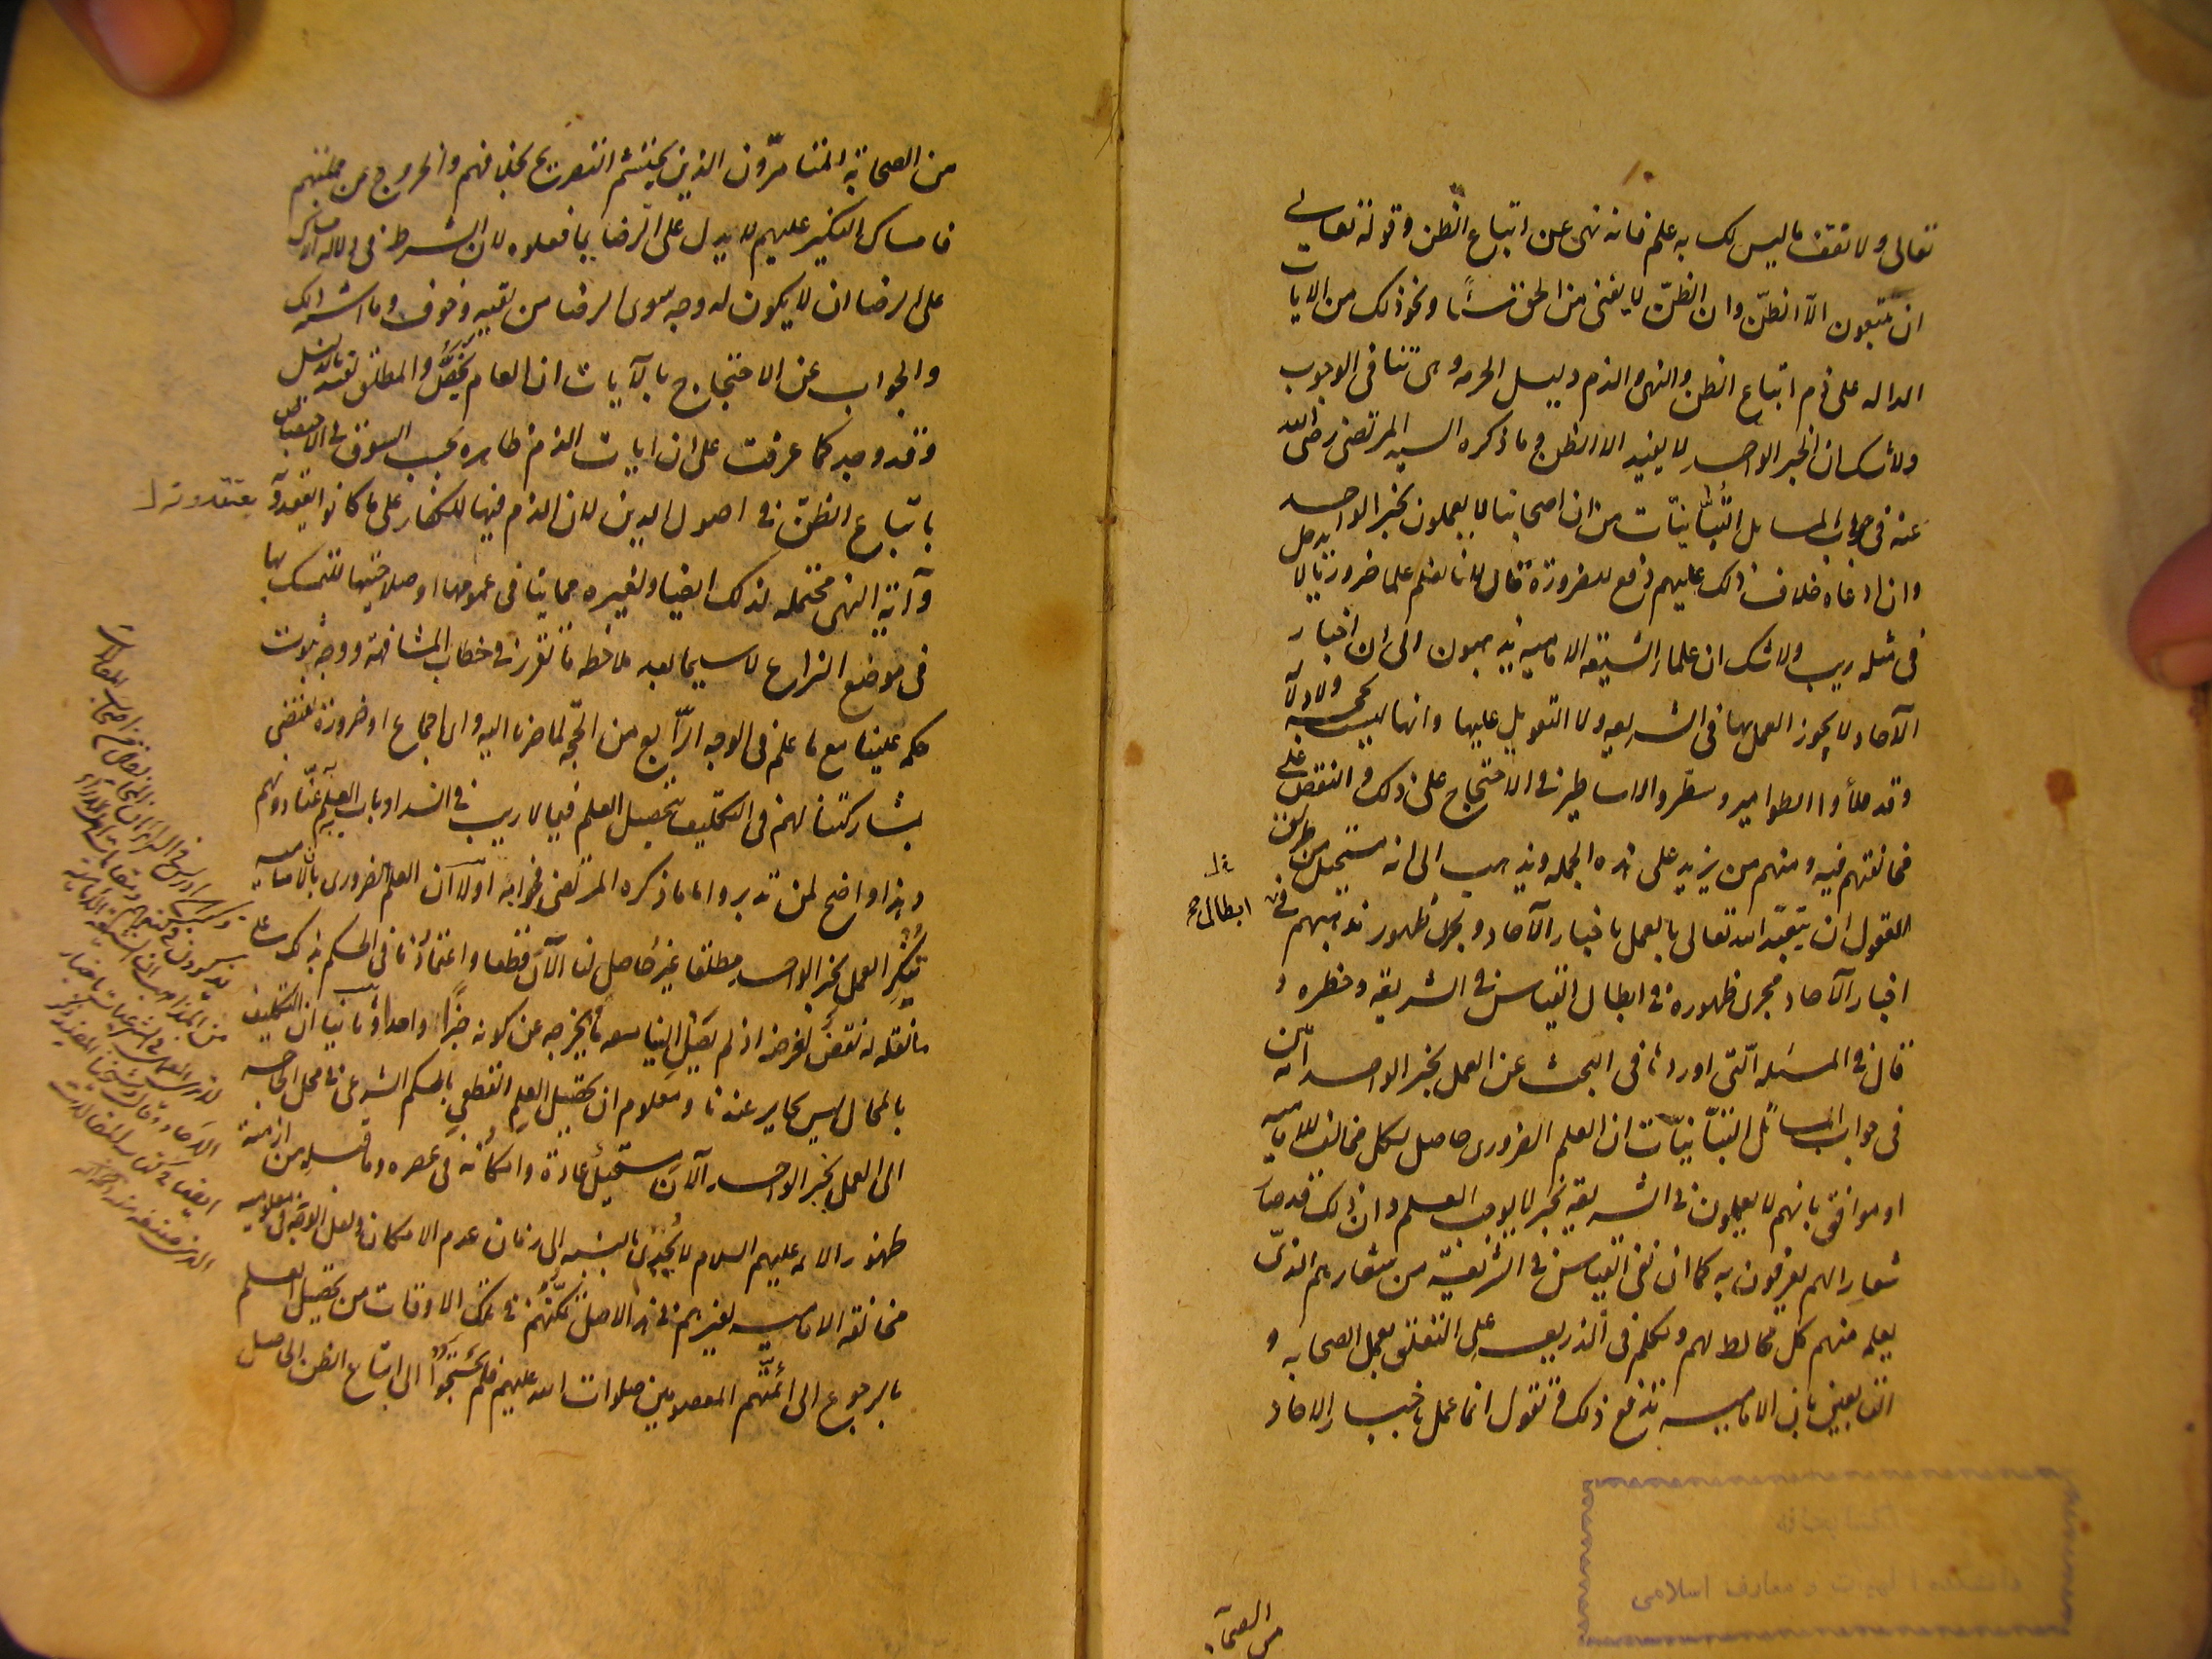 تعالى ولا تقف ما ليس لك به علم فانه نهى عن اتباع الظن وقوله تعالى
ان يتبعون الا الظن وان الظن لا يغنى من الحق شيئا ونحو ذلك من الايات
الداله على ذم اتباع الظن والنهى والذم دليل الحرمه وهى تنافى الوجوب
ولا شك ان الخبر الواحد لا يفيد الا الظن وما ذكره السيد المرتضى رضى الله
عنه فى جواب المسائل التبانيات من ان اصحابنا لا يعملون بخبر الواحد
وان ادعاء خلاف ذلك عليهم دفع للضرورة قال لانا نعلم علما ضروريا لا يدخل
فى مثله ريب ولا شك ان علماء الشيعة الاماميه يذهبون الى ان اخبار
الآحاد لا يجوز العمل بها فى الشريعه ولا التعويل عليها وانها ليست بحجه ولا دلالة
وقد ملأوا الطوامير وسطروا الاساطير فى الاحتجاج على ذلك والنقض على
مخالفيهم فيه ومنهم من يزيد على هذه الجمله ويذهب الى انه مستحيل من طريق
العقول ان يتعبد الله تعالى بالعمل باخبار الآحاد ويجرى ظهور مذهبهم فى
ابطال
اخبار الآحاد مجرى ظهوره فى ابطال القياس فى الشريعة وحظره و
قال فى المسئله التى اوردها فى البحث عن العمل بخبر الواحد انه بين
فى جواب المسائل التبانيات ان العلم الضرورى حاصل لكل مخالف للاماميه
او موافق بانهم لا يعملون فى الشريعة بخبر لا يوجب العلم وان ذلك قد صار
شعارا لهم يعرفون به كما ان نفى القياس فى الشريعة من شعارهم الذى
يعلمه منهم كل مخالط لهم وتكلم فى الذريعه على التعلق بعمل الصحابه و
التابعين بان الاماميه تدفع ذلك وتقول انما عمل باخبار الاحاد
من الصحابة
من الصحابة المتامرون الذين يحتشم التصريح بخلافهم والخروج عن جملتهم
فامساك النكير عليهم لا يدل على الرضا بما فعلوه لان الشرط فى دلالة الامساك
على الرضا ان لا يكون له وجه سوى الرضا من تقيه وخوف وما اشبه ذلك
والجواب عن الاحتجاج بالآيات ان العام يخص والمطلق يقيد بالدليل
وقد وجد كما عرفت على ان ايات الذم ظاهره بحسب السوق فى الاختصاص
باتباع الظن فى اصول الدين لان الذم فيها للكفار على ما كانوا
يعتقدونه
وآية النهى محتمله لذلك ايضا ولغيره مما ينافى عمومها او صلاحيتها للتمسك بها
فى موضع النزاع لا سيما بعد ملاحظه ما تقرر فى خطاب المشافهة ووجه ثبوت
حكمه علينا مع ما علم فى الوجه الرابع من الحجه لما صرنا اليه واى اجماع او ضرورة تقتضى
بمشاركتنا لهم فى التكليف بتحصيل العلم فيما لا ريب فى انسداد باب العلم عنا دونهم
وهذا واضح لمن تدبر واما ما ذكره المرتضى فجوابه اولا ان العلم الضرورى بان الاماميه
تنكر العمل بخبر الواحد مطلقا غير حاصل لنا الآن قطعا واعتمادنا فى الحكم بذلك على
ما نقله له نقض لغرضه اذ لم يصل الينا معه ما يخرجه عن كونه خبرا واحدا وثانيا ان التكليف
بالمحال ليس بجايز عندنا ومعلوم ان تحصيل العلم القطعى بالحكم الشرعى فى محل الحاجه
الى العمل بخبر الواحد الآن مستحيل عادة وامكانه فى عصره وما قبله من ازمنة
ظهور الائمه عليهم السلام لا يجدى بالنسبه الى زمان عدم الامكان ولعل الوجه فى معلوميه
مخالفه الاماميه لغيرهم فى هذا الاصل تمكنهم فى تلك الاوقات من تحصيل العلم
بالرجوع الى ائمتهم المعصومين صلوات الله عليهم فلم يحتاجوا الى اتباع الظن الحاصل
كتابخانه
دانشكده الهيات و معارف اسلامى